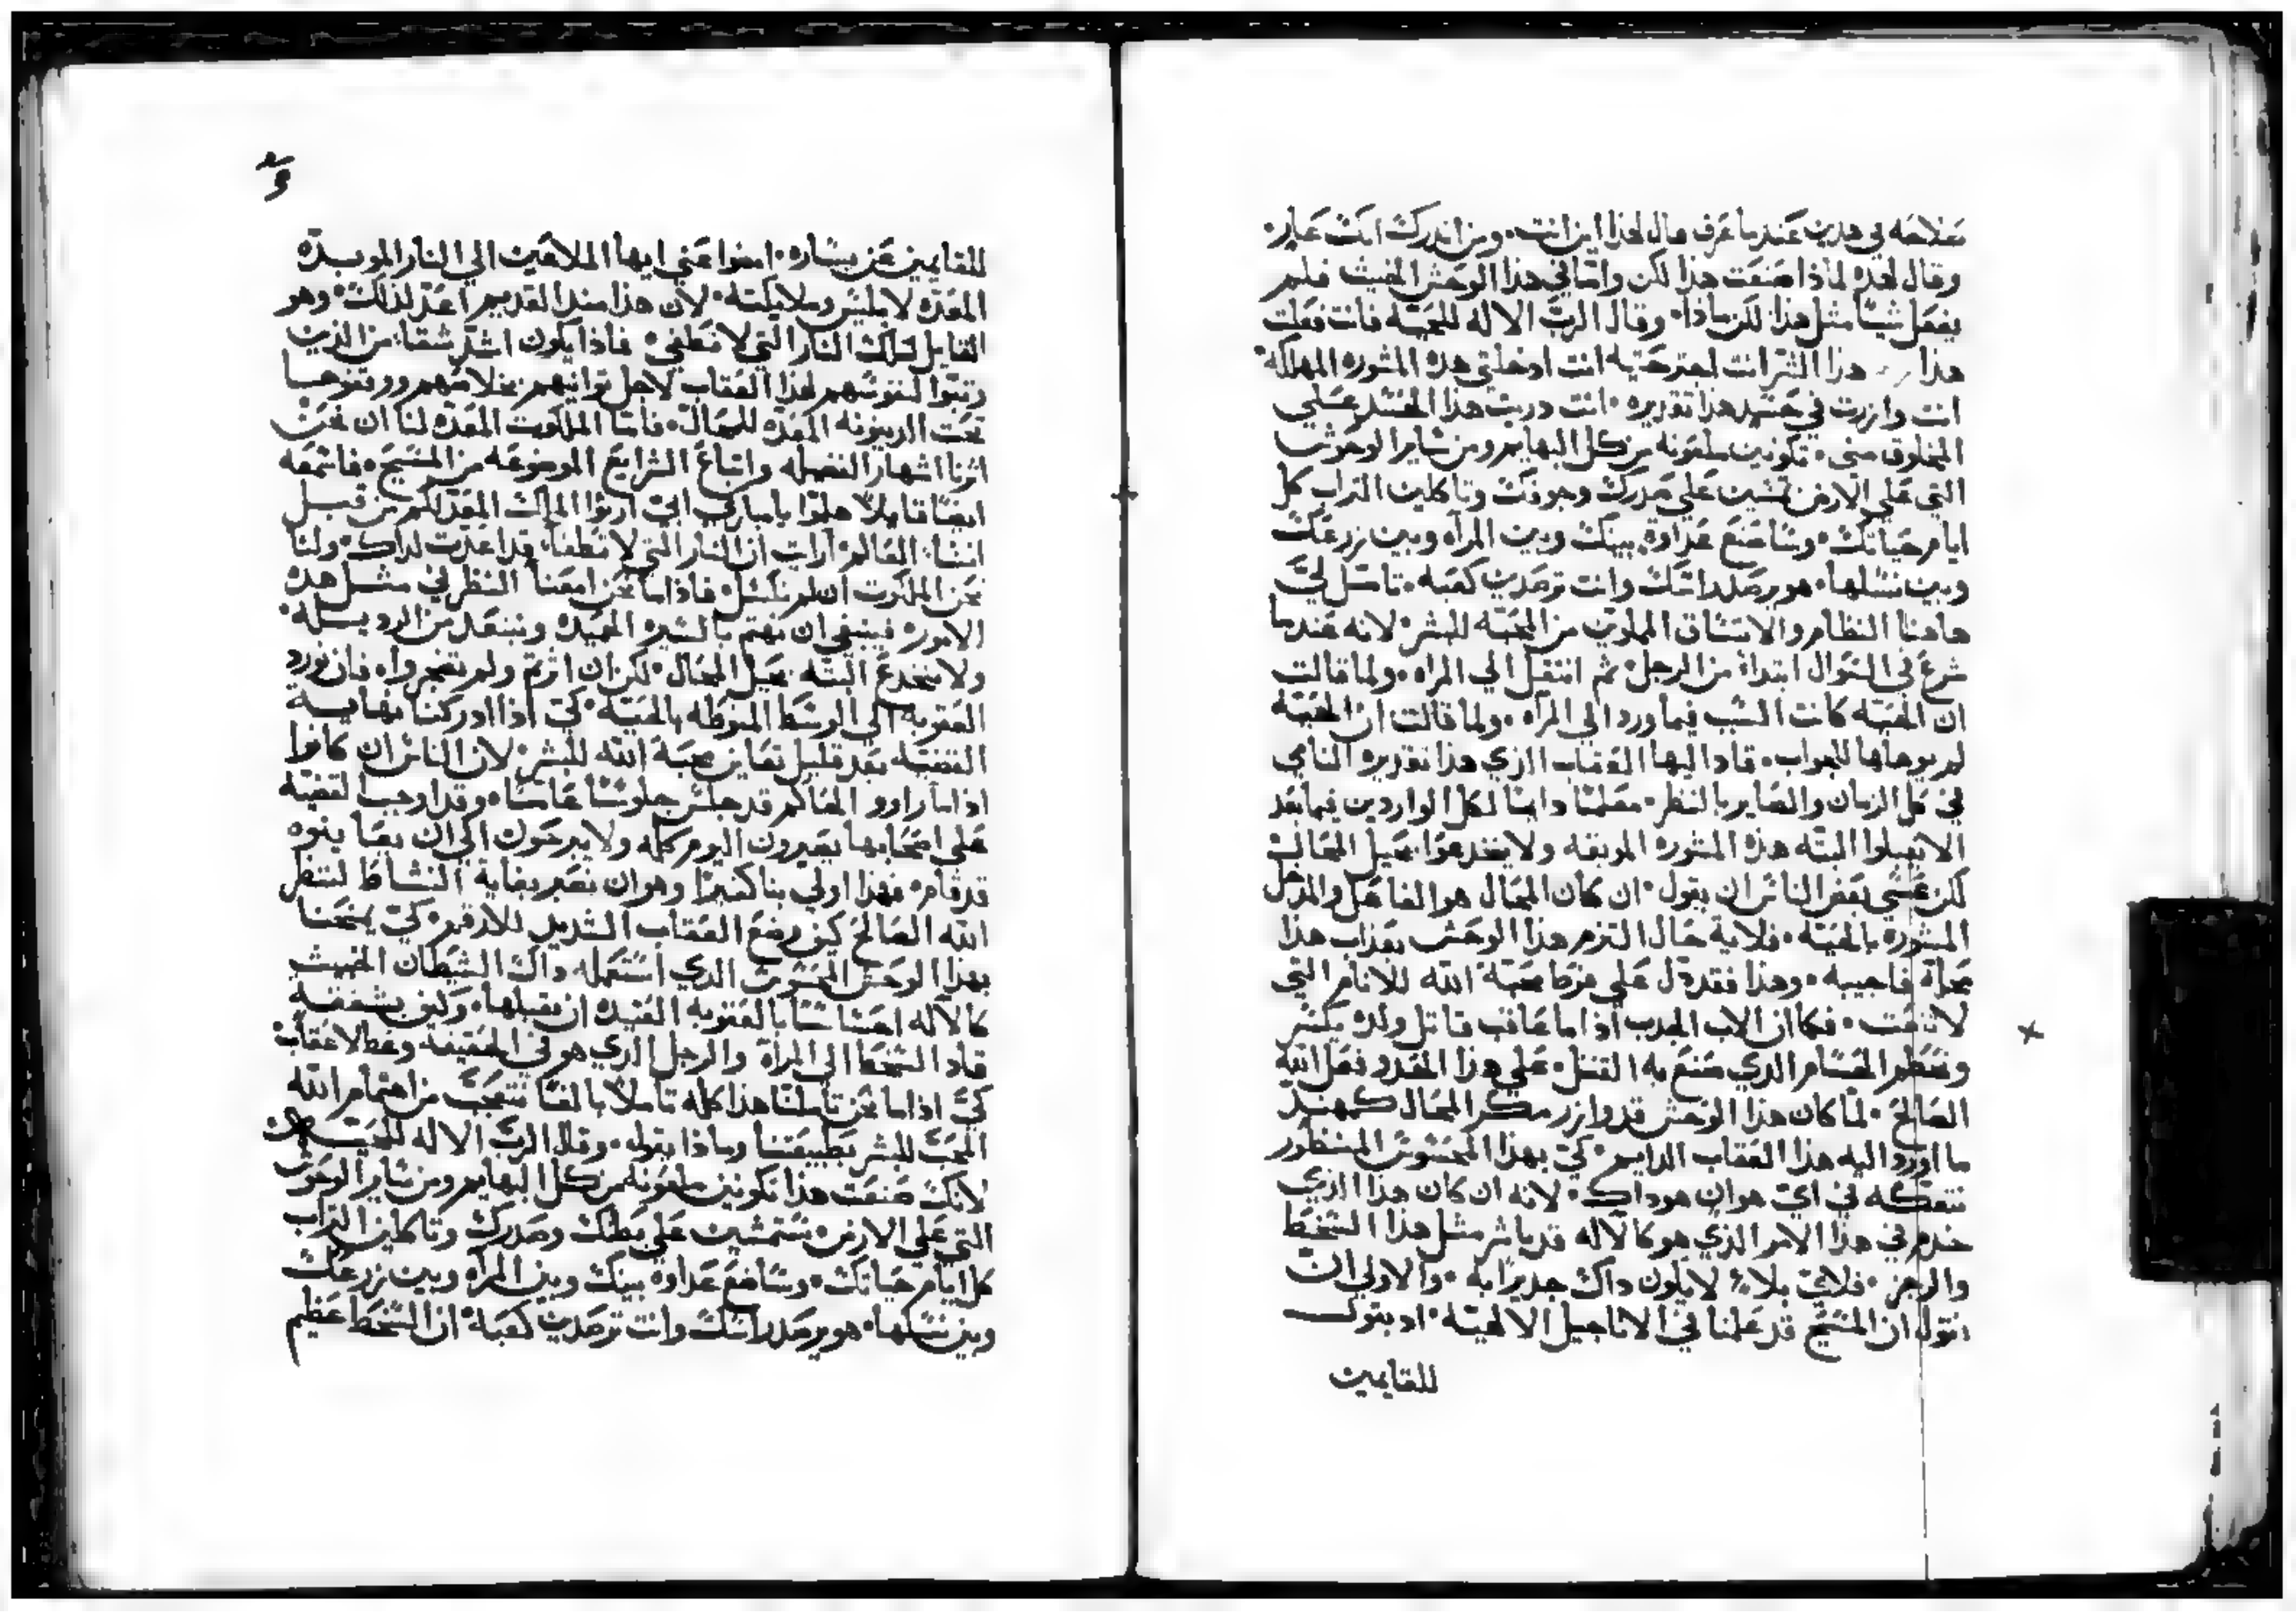 عندما عرف قال لهذا اين انت. ومن انذرك انك عار.
وقال لهذه لماذا صنعت هذا لكن واما في هذا الوحش الخبيث فلم
يفعل شيئا مثل هذا لكن ماذا. وقال الرب الاله للحيه فانت فعلت
هذا هذا الشر انت انت ادخلتي هذه المشوره المهلكه
انت وازرت في هذا تقديره. انت دربت هذا الحسد علي
المخلوق مني. تكونين ملعونه من كل البهايم ومن ساير الوحوش
التي علي الارض تمشين علي صدرك وجوفك وتاكلين التراب كل
ايام حياتك. وساضع عداوة بينك وبين المراه وبين زرعك
وبين نسلها. هو يرصد راسك وانت ترصدين كعبه. تامل لي
هاهنا النظام والاتساق المملوين من المحبه للبشر لانه عندما
شرع في السوال ابتدا من الرجل ثم انتقل الي المراه. ولما قالت
ان الحيه كانت السبب فيما ورد الي المراه. ولما قالت ان الحيه
لم يوهلها للجواب. قاد اليها العقاب الذي هذا تقديره النامي
في كل الزمان والصاير بالنظر معلما دايما لكل الواردين فيما بعد
الا يقبلوا البته هذه المشوره الموبقه ولا ينخدعوا بحيل المحال
لكن عسي بعض الناس ان يقول. ان كان المحال هو الفاعل والمدخل
المشوره بالحيه. فلاية حال التزم هذا الوحش بعذاب هذا
فاجيبه. وهذا فقد دل علي فرط محبة الله للانام التي
لا تنعت. فكما ان الاب المحب اذا ما عاقب قاتل ولده يكسر
ويحطم الحسام الذي صنع به القتل. علي هذا الحدود فعل الله
الصالح. لما كان هذا الوحش قد وازر مكر المحال كمهند
ما اورد اليه هذا العقاب الدايم. كي بهذا المحسوس المنظور
نتفكه في اي هوان هو ذاك. لانه ان كان هذا الذي
خدم في هذا الامر الذي هو كالاله قد باشر مثل هذا السخط
والرجز. فلاي بلاء لا يكون ذاك جديرا به. والاولي ان
نقول ان المسيح قد علمنا في الاناجيل الالهيه. اذ يقول
للقايمين
للقايمين عن يساره. امضوا عني ايها الملاعين الي النار الموبده
المعده لابليس وملايكته. لان هذا منذ القديم اعد لذلك. وهو
القابل تلك النار التي لا تطفي. فماذا يكون اشد شقاء من الذين
رتبوا لنفوسهم هذا العقاب لاجل توانيهم بخلاصهم ووقعوهما
تحت الدينونه المعده للمحال. فاما الملكوت المعده لنا ان نحن
اثرنا اشهار الفضيله واتباع الشرايع الموضوعه من المسيح. فاسمعه
ايضا قايلا هلموا يا مباركي ابي ارثوا الملك المعد لكم من قبل
انشاء العالم. ارايت ان النار التي لا تطفا. قد اعدت لذاك. ولنا
نحن الملكوت ان لم نكسل. فاذا ما نحن امعنا النظر في مثل هذه
الامور. فينبغي ان نهتم بالسيره الحميده ونبتعد من الرديله.
ولا ننخدع البته بحيل المحال. لكن ان اثرتم ولم تضجروا. فان نورد
العقوبه الي الوسط المنوطه بالحيه. كي اذا ادركنا نهاية
القضيه بعد قليل نعاين محبة الله للبشر. لان الناس ان كانوا
اذا ما راوا الحاكم قد جلس جلوسا عاما. وقد اوجب القضيه
علي اصحابها يصبرون اليوم كله ولا يبرحون الي ان يعاينوه
قد قام. فهذا اولي بنا كثيرا وهو ان نصبر بغاية النشاط لننظر
الله الصالح كيف وضع العقاب الشديد للارقم. كي يمنحنا
بهذا الوحش المحسوس الذي استعمله ذاك الشيطان الخبيث
كالاله احساسا بالعقوبه العتيده ان يقبلها. وكيف بشفقه
قاد السخط الي المراة والرجل الذي هو في الحقيقه وعظ لا عقاب
كي اذا ما نحن تاملنا هذا كله تاملا بالغا نتعجب من اهتمام الله
المحب للبشر بطبيعتنا وماذا يقول. وقال الرب الاله للحيه
لانك صنعت هذا تكونين ملعونه من كل البهايم ومن ساير الوحوش
التي علي الارض ستمشين علي بطنك وصدرك وتاكلين التراب
كل ايام حياتك. وساضع عداوه بينك وبين المراه وبين زرعك
وبين نسلها. هو يرصد راسك وانت ترصدين كعبه. ان السخط عظيم